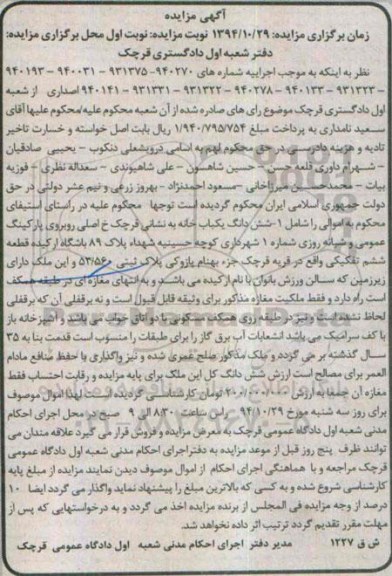 آگهی مزایده
زمان برگزاری مزایده: ۱۳۹۴/۱۰/۲۹ نوبت مزایده: نوبت اول محل برگزاری مزایده:
دفتر شعبه اول دادگستری قرچک
نظر به اینکه به موجب اجراییه شماره های ۹۴۰۲۷۰- ۹۳۱۳۷۵ - ۹۴۰۰۳۱ - ۹۴۰۱۹۳
- ۹۳۱۳۲۳ - ۹۴۰۱۳۳ - ۹۴۰۲۷۸ - ۹۳۱۳۲۲ - ۹۳۱۳۳۱ - ۹۴۰۱۴۱ اصداری از شعبه
اول دادگستری قرچک موضوع رای های صادره شده از آن شعبه محکوم علیه/محکوم علیها آقای
سعید نامداری به پرداخت مبلغ ۱/۹۴۰/۷۹۵/۷۵۴ ریال بابت اصل خواسته و خسارت تاخیر
تادیه و هزینه دادرسی در حق محکوم لهم به اسامی درویشعلی دنکوب - یحیی صادقیان
- شهرام داوری قلعه حیدر - حسین شاهسون - علی شاهیوندی - سعداله نظری - فوزیه
بیات - محمدحسین میرزاخانی -مسعود احمدنژاد - بهروز زرعی و نیم عشر دولتی در حق
دولت جمهوری اسلامی ایران محکوم گردیده است توجها محکوم علیه در راستای استیفای
محکوم به اموالی را شامل ۱-شش دانگ یکباب خانه به نشانی قرچک خ اصلی روبروی پارکینگ
عمومی و شبانه روزی شماره ۱ شهرداری کوچه حسینیه شهداء پلاک ۸۹ باشگاه ارکیده قطعه
ششم تفکیکی واقع در قریه قرچک جزء بهنام پازوکی پلاک ثبتی ۵۳/۵۶۰ و این ملک دارای
زیرزمین که سالن ورزش بانوان با نام ارکیده می باشد و به انتهای مغازه ای در طبقه همکف
است راه دارد و فقط ملکیت مغازه مذکور برای وثیقه قابل قبول است و نه برقفلی آن که برقفلی
لحاظ نشده است و نیز در طبقه روی همکف مسکونی با دو اتاق خواب می باشد و آشپزخانه باز
با کف سرامیک می باشد انشعابات آب برق گاز را برای طبقات را منسوب است قدمت بنا به ۳۵
سال گذشته بر می گردد و ملک مذکور صلح عمری شده و نیز واگذاری با حفظ منافع مادام
العمر برای مصالح است ارزش شش دانگ کل این ملک برای پایه مزایده و رقابت احتساب فقط
مغازه آن جمعا به ارزش ۲۰۱/۰۰۰/۰۰۰ تومان کارشناسی گردیده است. لهذا اموال موصوف
برای روز سه شنبه مورخ ۹۴/۱۰/۲۹ راس ساعت ۸:۳۰ الی ۹ صبح در محل اجرای احکام
مدنی شعبه اول دادگاه عمومی قرچک به معرض مزایده و فروش قرار می گیرد علاقه مندان می
توانند ظرف پنج روز قبل از موعد مزایده به دفتر اجرای احکام مدنی شعبه اول دادگاه عمومی
قرچک مراجعه و با هماهنگی اجرای احکام از اموال موصوف دیدن نمایند مزایده از مبلغ پایه
کارشناسی شروع شده و به کسی که بالاترین مبلغ را پیشنهاد نماید واگذار می گردد ایضا ۱۰
درصد از وجه مزایده فی المجلس از برنده مزایده اخذ می گردد و به درخواستهایی که پس از
مهلت مقرر تقدیم گردد ترتیب اثر داده نخواهد شد.
ش ق ۱۲۲۷ مدیر دفتر اجرای احکام مدنی شعبه اول دادگاه عمومی قرچک